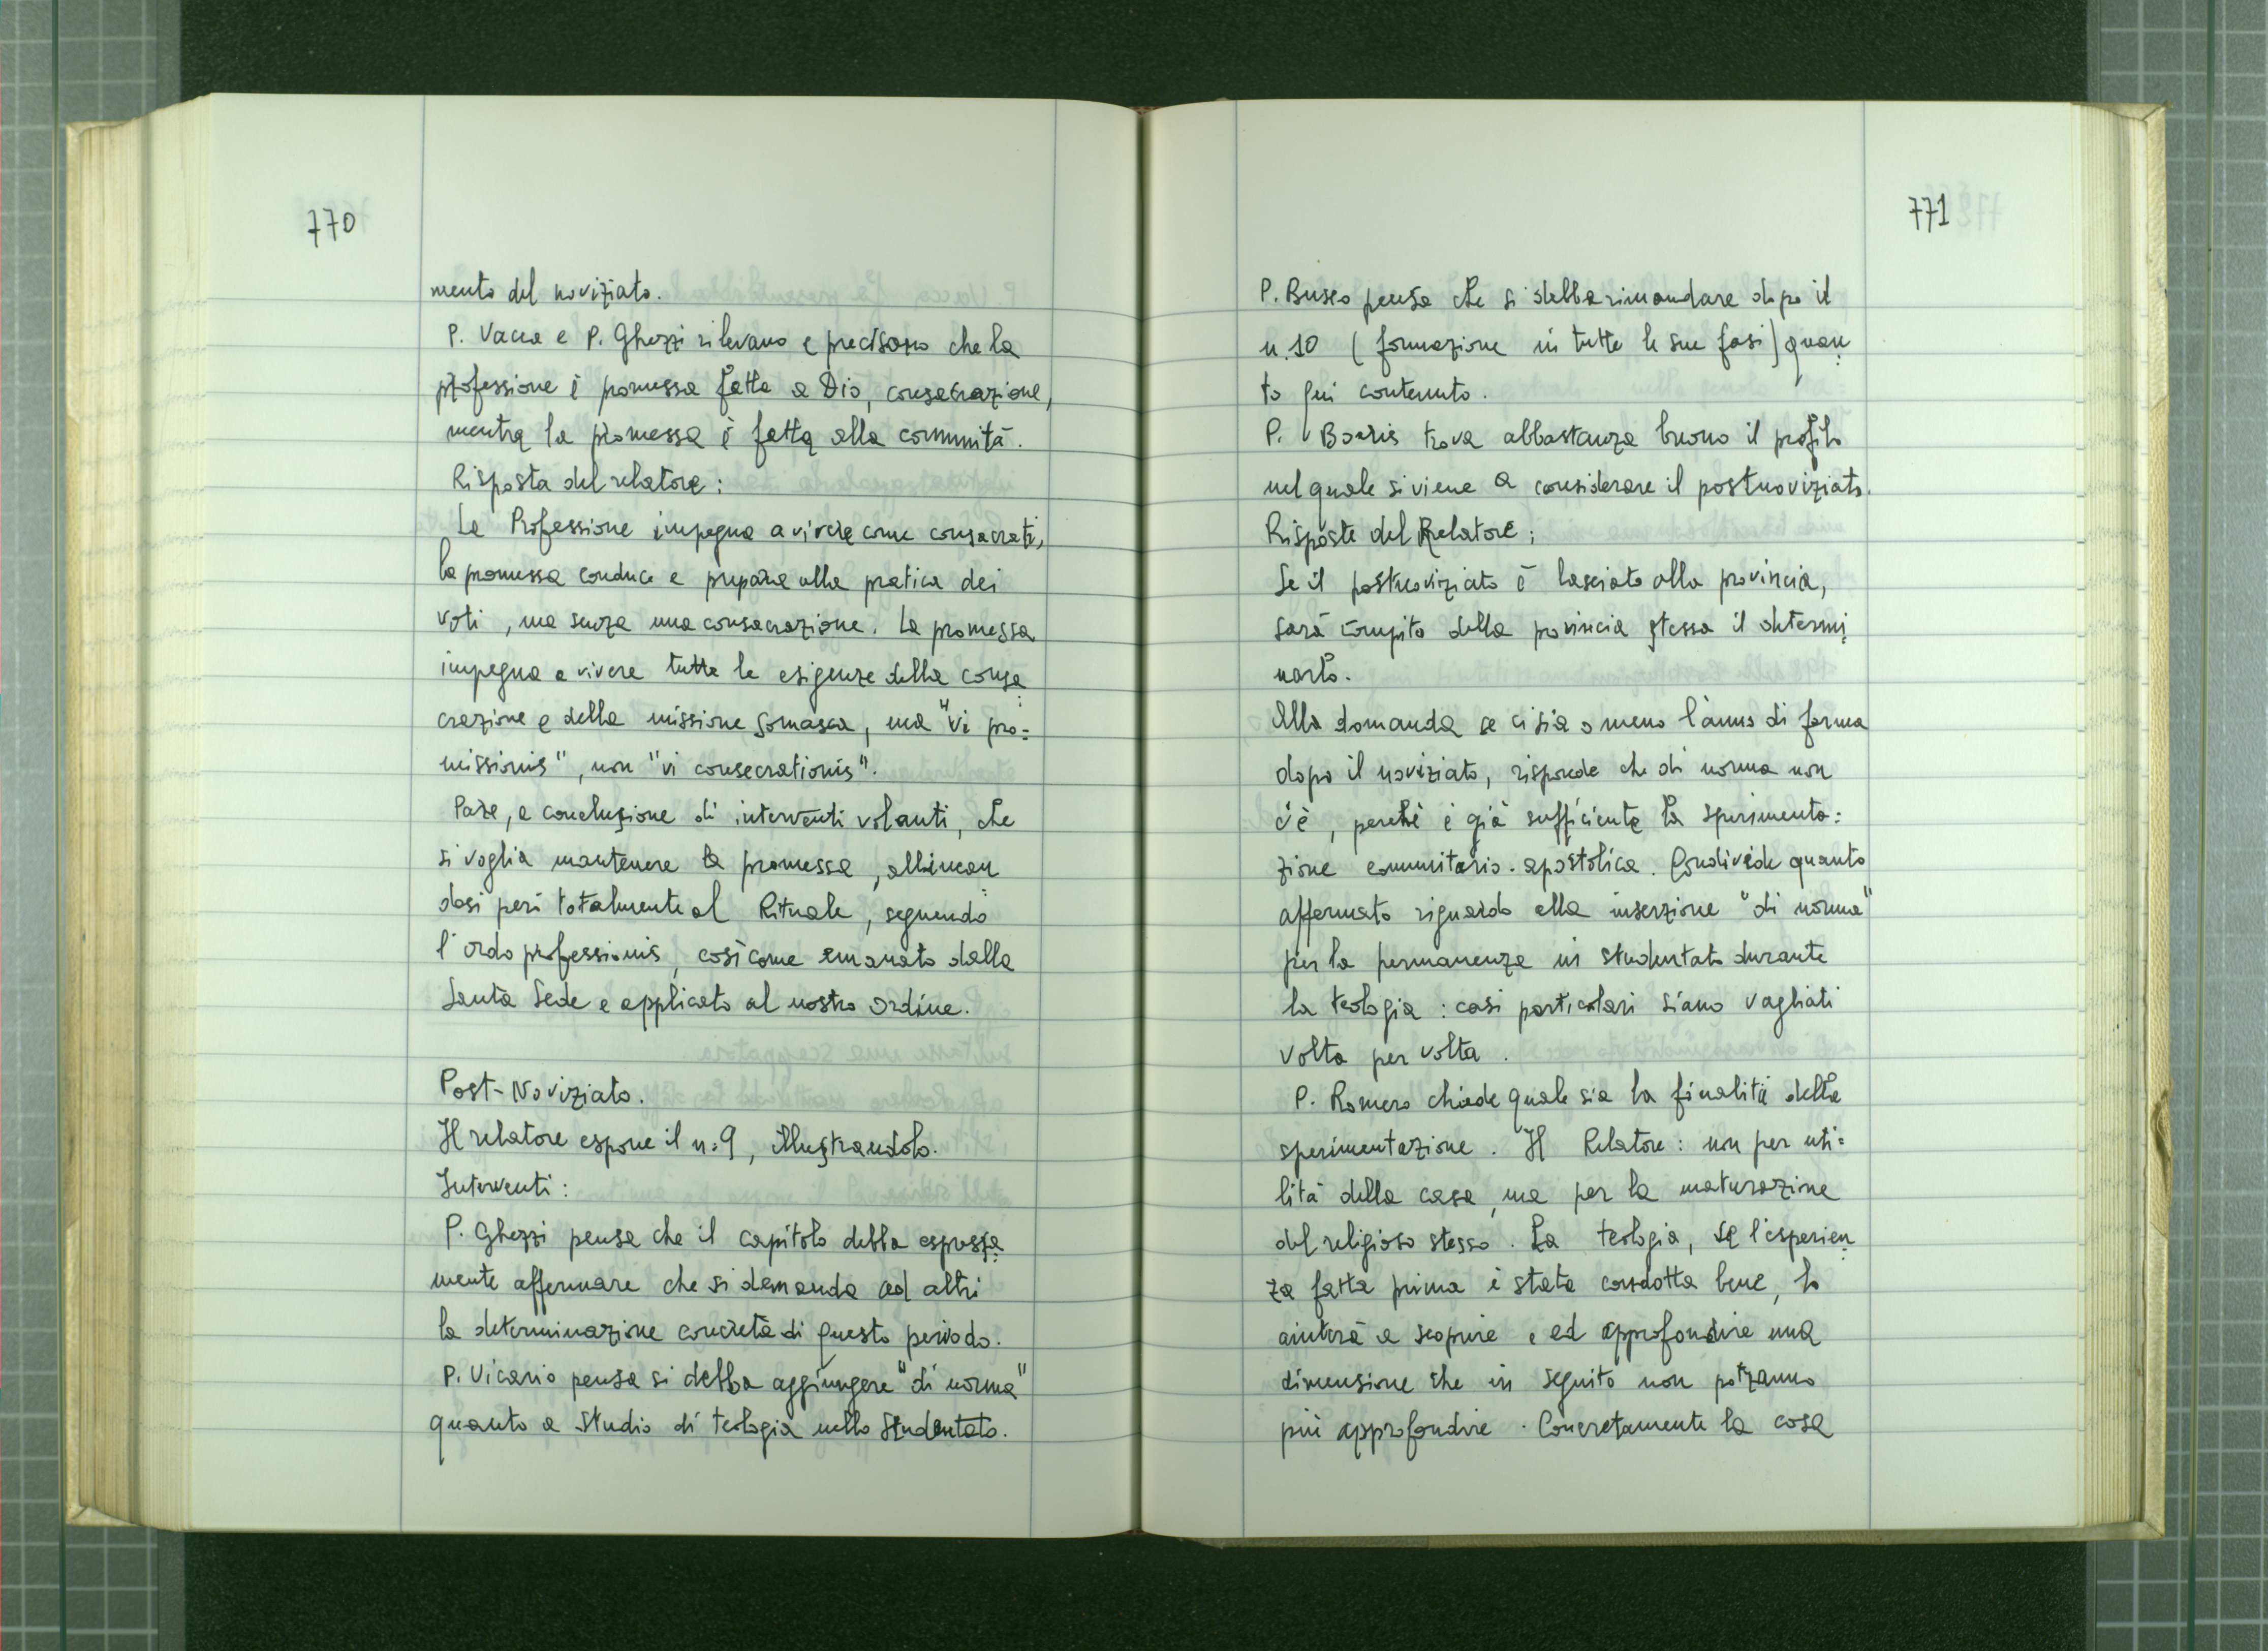 770
mento del noviziato.
P. Vacca e P. Ghezzi rilevano e precisano che la
professione è promessa fatta a Dio, consacrazione,
mentre la promessa è fatta alla comunità.
Risposta del relatore:
La Professione impegna a vivere come consacrati,
la promessa conduce e prepara alla pratica dei
voti, ma senza una consacrazione. La promessa
impegna a vivere tutte le esigenze della consa
crazione e della missione somasca, ma "vi pro=
missionis", non "vi consecrationis".
Pare, a conclusione di interventi volanti, che
si voglia mantenere la promessa, allinean
dosi però totalmente al Rituale, seguendo
l'ordo professionis, così come emanato dalla
Santa Sede e applicato al nostro Ordine.
Post-Noviziato.
Il relatore espone il n. 9, illustrandolo.
Interventi:
P. Ghezzi pensa che il capitolo debba espressa
mente affermare che si demanda ad altri
la determinazione concreta di questo periodo.
P. Vicario pensa si debba aggiungere "di norma"
quanto a studio di teologia nello studentato.
771
P. Busco pensa che si debba rimandare dopo il
n. 10 (formazione in tutte le sue fasi) quan
to qui contenuto.
P. trova abbastanza buono il profilo
nel quale si viene a considerare il postnoviziato.
Risposte del Relatore:
Se il postnoviziato è lasciato alla provincia,
sarà compito della provincia stessa il determi
narlo.
Alla domanda se ci sia o meno l'anno di forma
dopo il noviziato, risponde che di norma non
c'è, perché è già sufficiente la sperimenta=
zione comunitario-apostolica. Condivide quanto
affermato riguardo alla inserzione "di norma"
per la permanenza in studentato durante
la teologia: casi particolari siano vagliati
volta per volta.
P. Romero chiede quale sia la finalità della
sperimentazione. Il Relatore: non per uti=
lità della casa, ma per la maturazione
del religioso stesso. La teologia, se l'esperien
za fatta prima è stata condotta bene, lo
aiuterà a scoprire e ed approfondire una
dimensione che in seguito non potranno
più approfondire. Concretamente la cosa